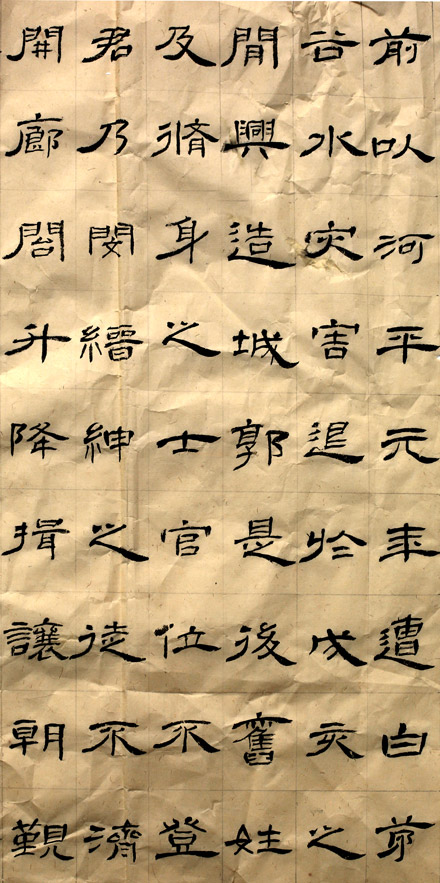 前以河平元年遭白茅
谷水灾害退於戌亥之
閒興造城郭是後舊姓
及脩身之士官位不登
君乃閔縉紳之徒不濟
開廊閤升降揖讓朝覲